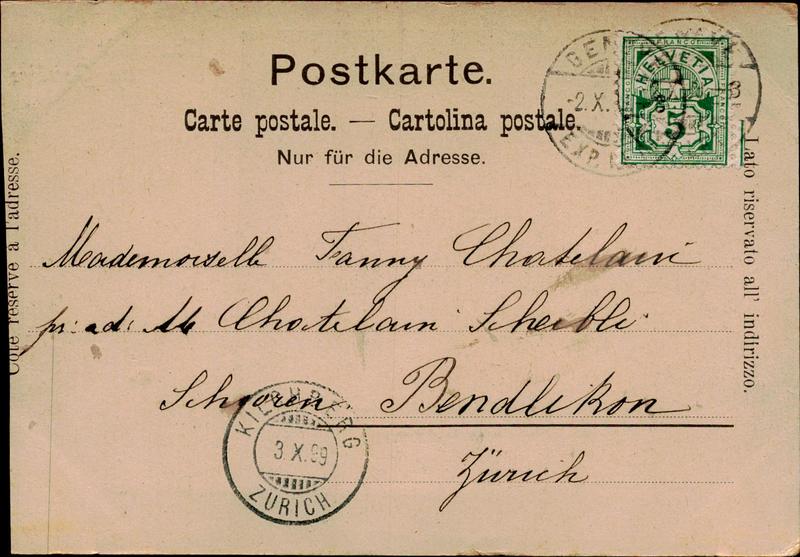 Postkarte.
Carte postale. — Cartolina postale.
Nur für die Adresse.
Côté réservé à l'adresse.
Lato riservato all' indirizzo.
FRANCO
HELVETIA
5
-2.X.
EXP
Mademoiselle Fanny Chatelain
pr: ad: M Chatelain Scheibli
Schooren Bendlikon
Zürich
KILCHBERG
3.X.99
ZÜRICH